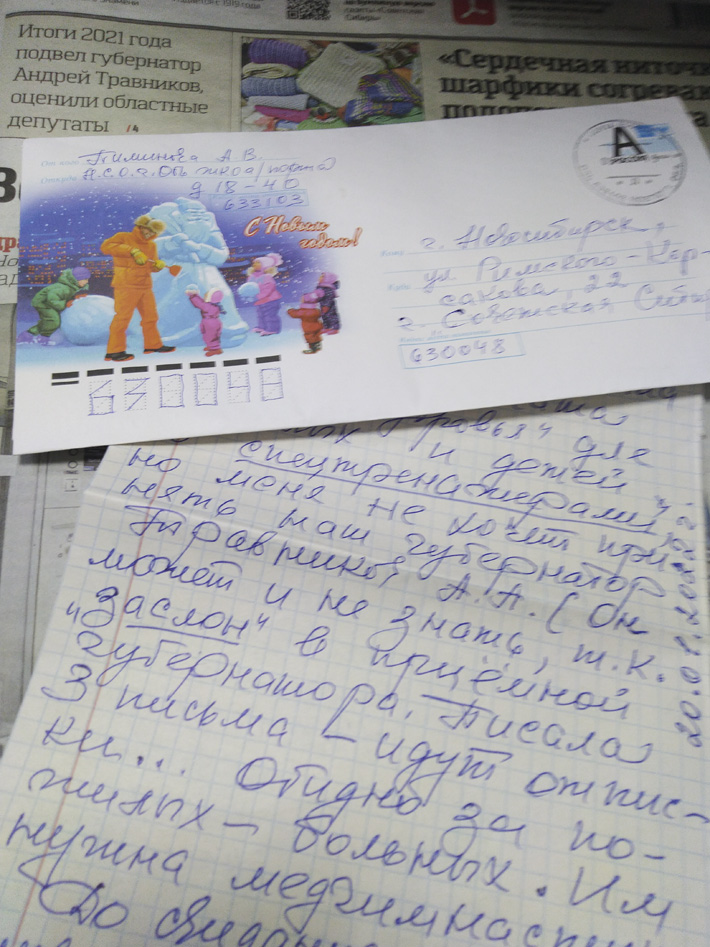 Итоги 2021 года
подвел губернатор
Андрей Травников,
оценили областные
депутаты
«Сердечная ниточ
шарфики согрева
От кого Пиминова А. В.
Откуда
д 18-40
633103
С Новым
годом!
А
Кому г. Новосибирск,
Куда ул Римского-Кор-
сакова, 22
г. Советская Сибир
630048
630048
для
и детей
спецтренажерами",
но меня не хочет при-
нять наш губернатор
Травников А.А. (Он
может и не знать, т.к.
"Заслон" в приёмной
губернатора. Писала
3 письма – идут отпис-
ки... Обидно за по-
жилых – больных. Им
нужна медгимнасти
До свидан